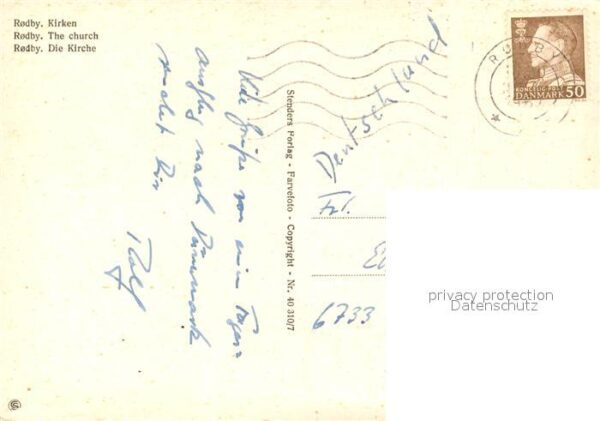 Rødby. Kirken
Rødby. The church
Rødby. Die Kirche
Viele Grüße von einem Tages
ausflug nach Dänemark
sendet Dir
Rolf
Stenders Forlag - Farvefoto - Copyright - Nr. 40 310/7
RØDBY
KONGELIG POST
DANMARK 50
Deutschland
Frl.
6733
privacy protection
Datenschutz